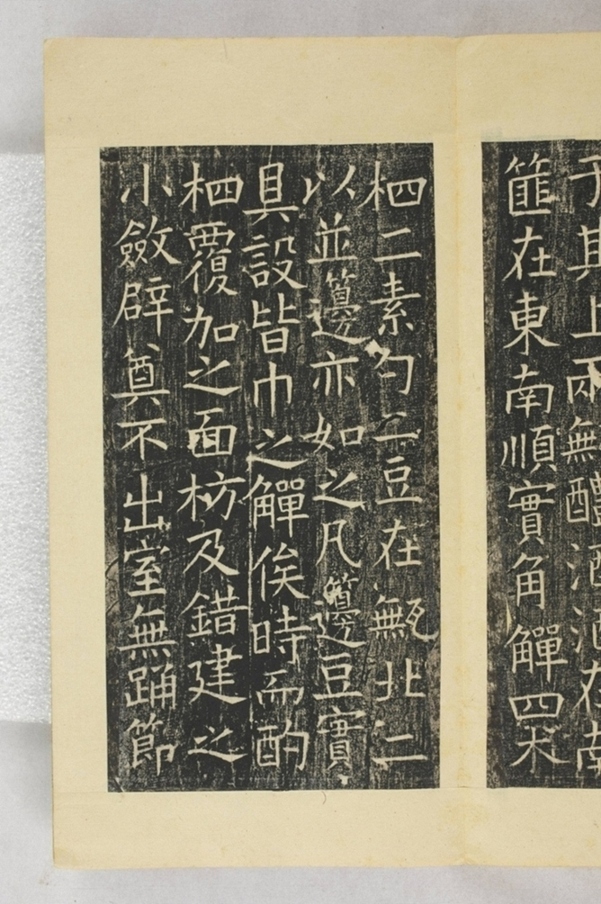 于其上兩甒醴酒酒在南
篚在東南順實角觶四木
柶二素勺二豆在甒北二
以並籩亦如之凡籩豆實
具設皆巾之觶俟時而酌
柶覆加之面枋及錯建之
小斂辟奠不出室無踊節